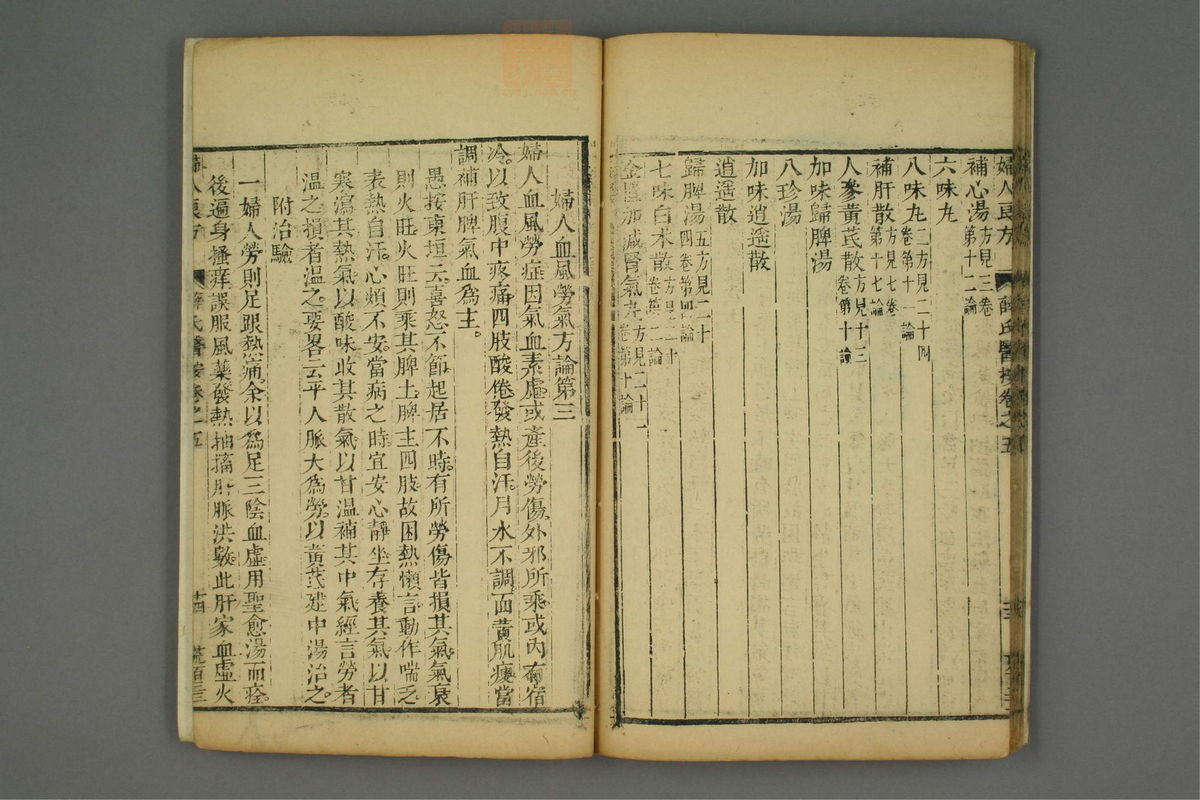 婦人良方
薛氏醫按卷之五
補心湯方見三卷第十二論
六味丸
八味丸二方見二十四卷第十一論
補肝散方見七卷第十七論
人參黃芪散方見十三卷第十論
加味歸脾湯
八珍湯
加味逍遥散
逍遥散
歸脾湯五方見二十四卷第四論
七味白朮散方見二十
金匱加減腎氣丸方見二十一卷第十論
婦人血風勞氣方論第三
婦人血風勞症因氣血素虛或產後勞傷外邪所乘或內有宿
冷以致腹中疼痛四肢酸倦發熱自汗月水不調面黃肌瘦當
調補肝脾氣血爲主
愚按東垣云喜怒不節起居不時有所勞傷皆損其氣氣衰
則火旺火旺則乘其脾土脾主四肢故困熱懶言動作喘乏
表熱自汗心煩不安當病之時宜安心靜坐存養其氣以甘
寒瀉其熱氣以酸味收其散氣以甘温補其中氣經言勞者
温之損者温之要畧云平人脈大爲勞以黃芪建中湯治之
附治驗
一婦人勞則足跟熱痛余以爲足三陰血虛用聖愈湯而痊
後遍身搔痒誤服風藥發熱抽搐肝脈洪數此肝家血虛火
婦人良方
薛氏醫按卷之五
十四